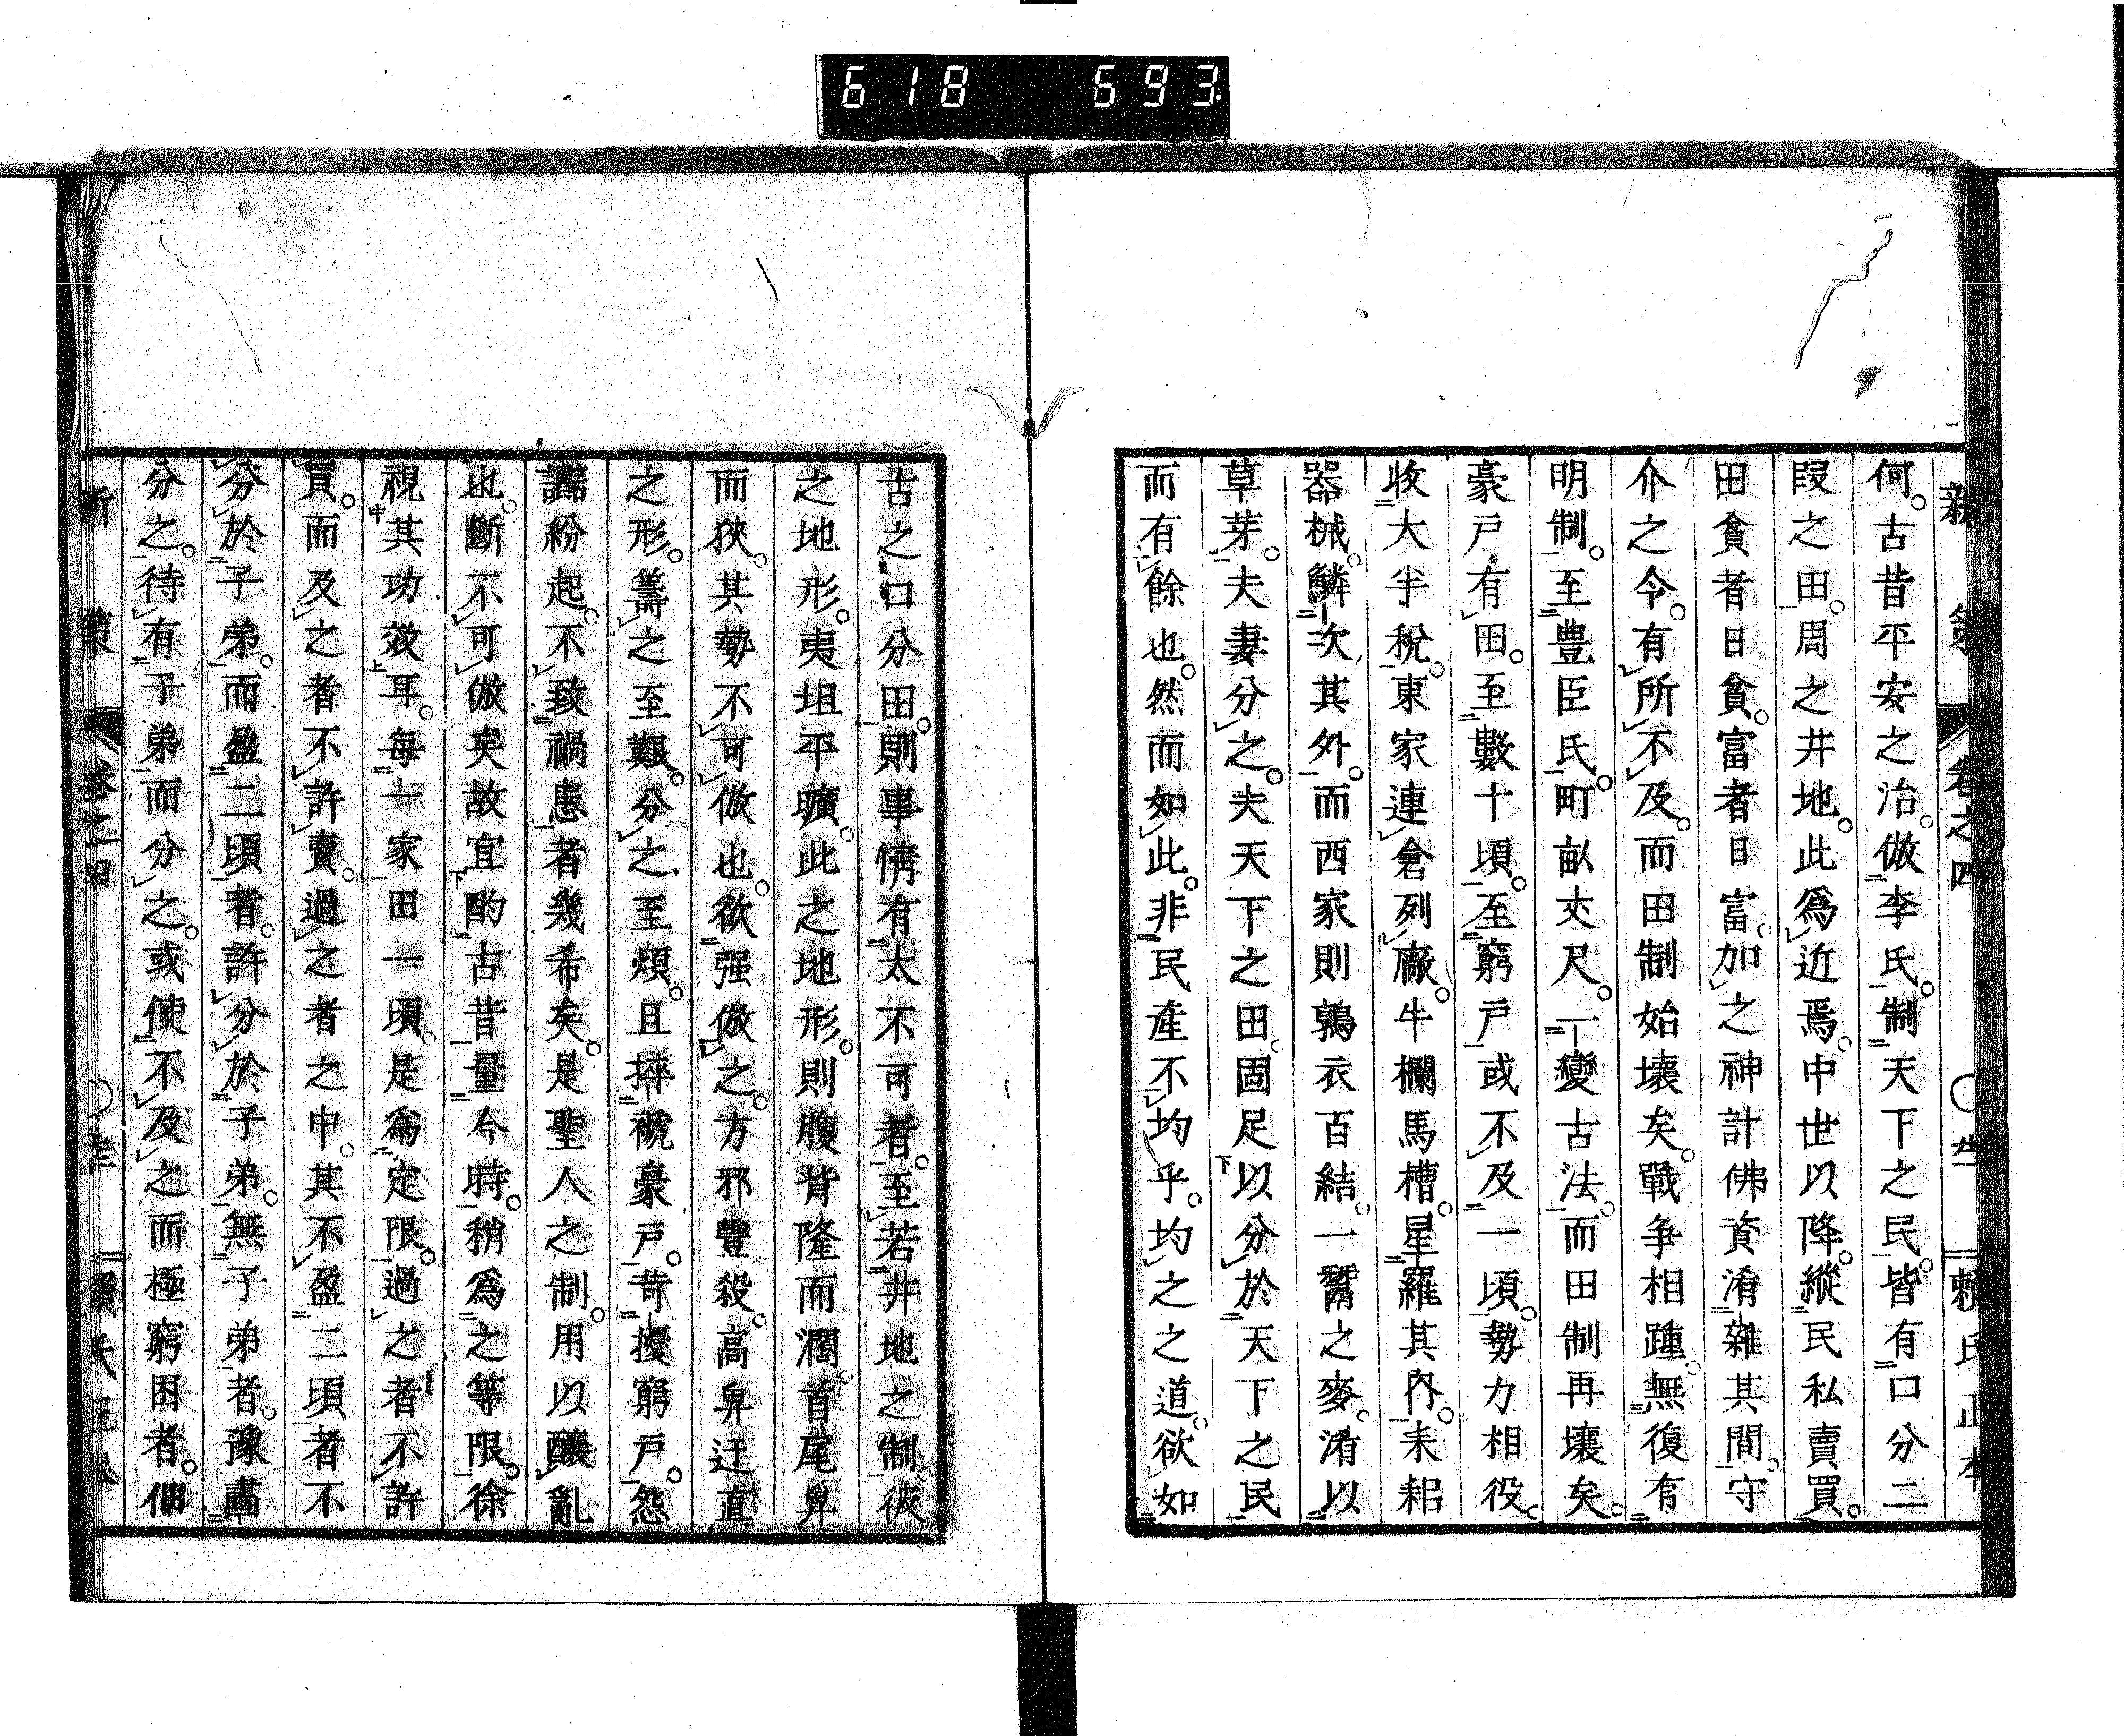 618 693
新策 卷之四 〇廿 賴氏正本
何。古昔平安之治。倣李氏。制天下之民。皆有口分二
段之田。周之井地。此爲近焉。中世以降。縱民私賣買。
田貧者日貧。富者日富。加之神計佛資淆雜其間。守
介之令。有所不及。而田制始壞矣。戰爭相踵。無復有
明制。至豊臣氏。町畝丈尺。一變古法。而田制再壞矣。
豪戸有田。至數十頃。至窮戸或不及一頃。勢力相役。
收大半稅。東家連倉列廠。牛欄馬槽。星羅其內。耒耜
器械。鱗次其外。而西家則鶉衣百結。一䰂之麥。淆以
草芽。夫妻分之。夫天下之田。固足以分於天下之民
而有餘也。然而如此。非民產不均乎。均之之道。欲如
古之口分田。則事情有太不可者。至若井地之制。彼
之地形。夷坦平曠。此之地形。則腹背隆而濶。首尾卑
而狹。其勢不可倣也。欲强倣之。方邪豐殺。高卑迂直
之形。籌之至艱。分之至煩。且捽褫豪戸。苛擾窮戸。怨
讟紛起。不致禍患者幾希矣。是聖人之制。用以釀亂
也。斷不可倣矣故宜酌古昔量今時。稍爲之等限。徐
視其功效耳。每一家田一頃。是爲定限。過之者不許
買。而及之者不許賣。過之者之中。其不盈二頃者不
分於子弟。而盈二頃者。許分於子弟。無子弟者。豫畵
分之。待有子弟而分之。或使不及之而極窮困者。佃
新策 卷之四